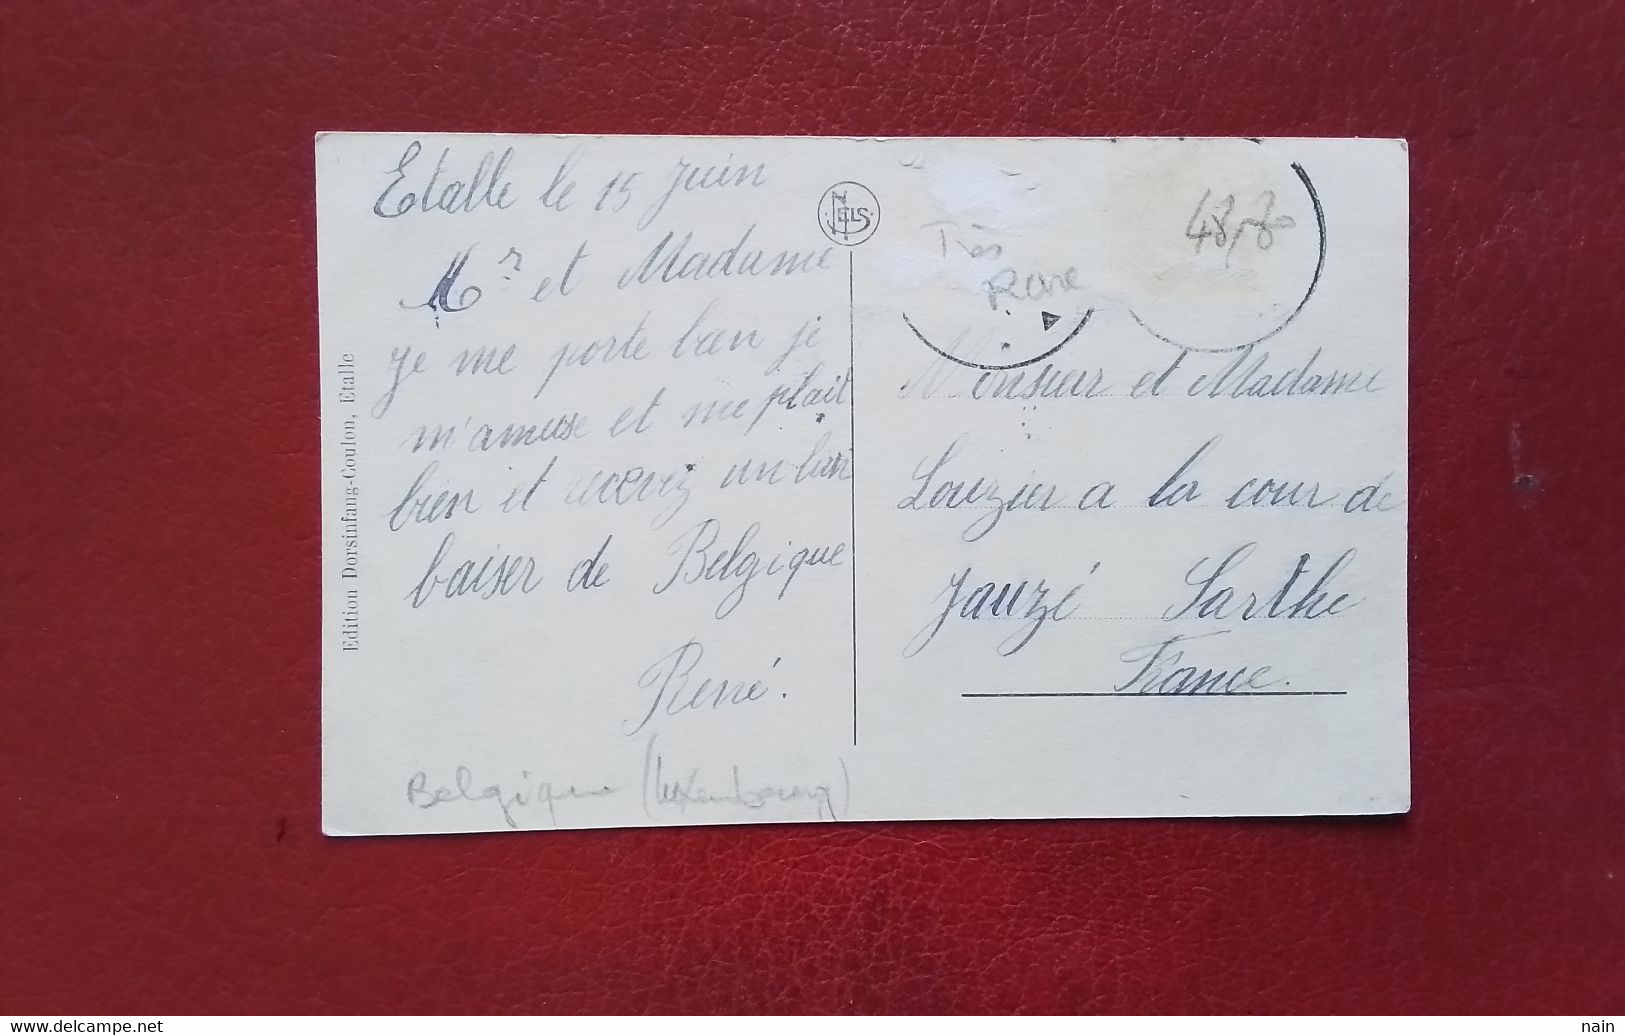 Etalle le 15 Juin
Mr et Madame
je me porte bien je
m'amuse et me plait
bien et recevez un bon
baiser de Belgique
René.
Belgique (Luxembourg)
Edition Dorsinfang-Coulon, Etalle
NELS
Très
Rare
48,-
Monsieur et Madame
Louzier a la cour de
Jauzé Sarthe
France.
www.delcampe.net
nain